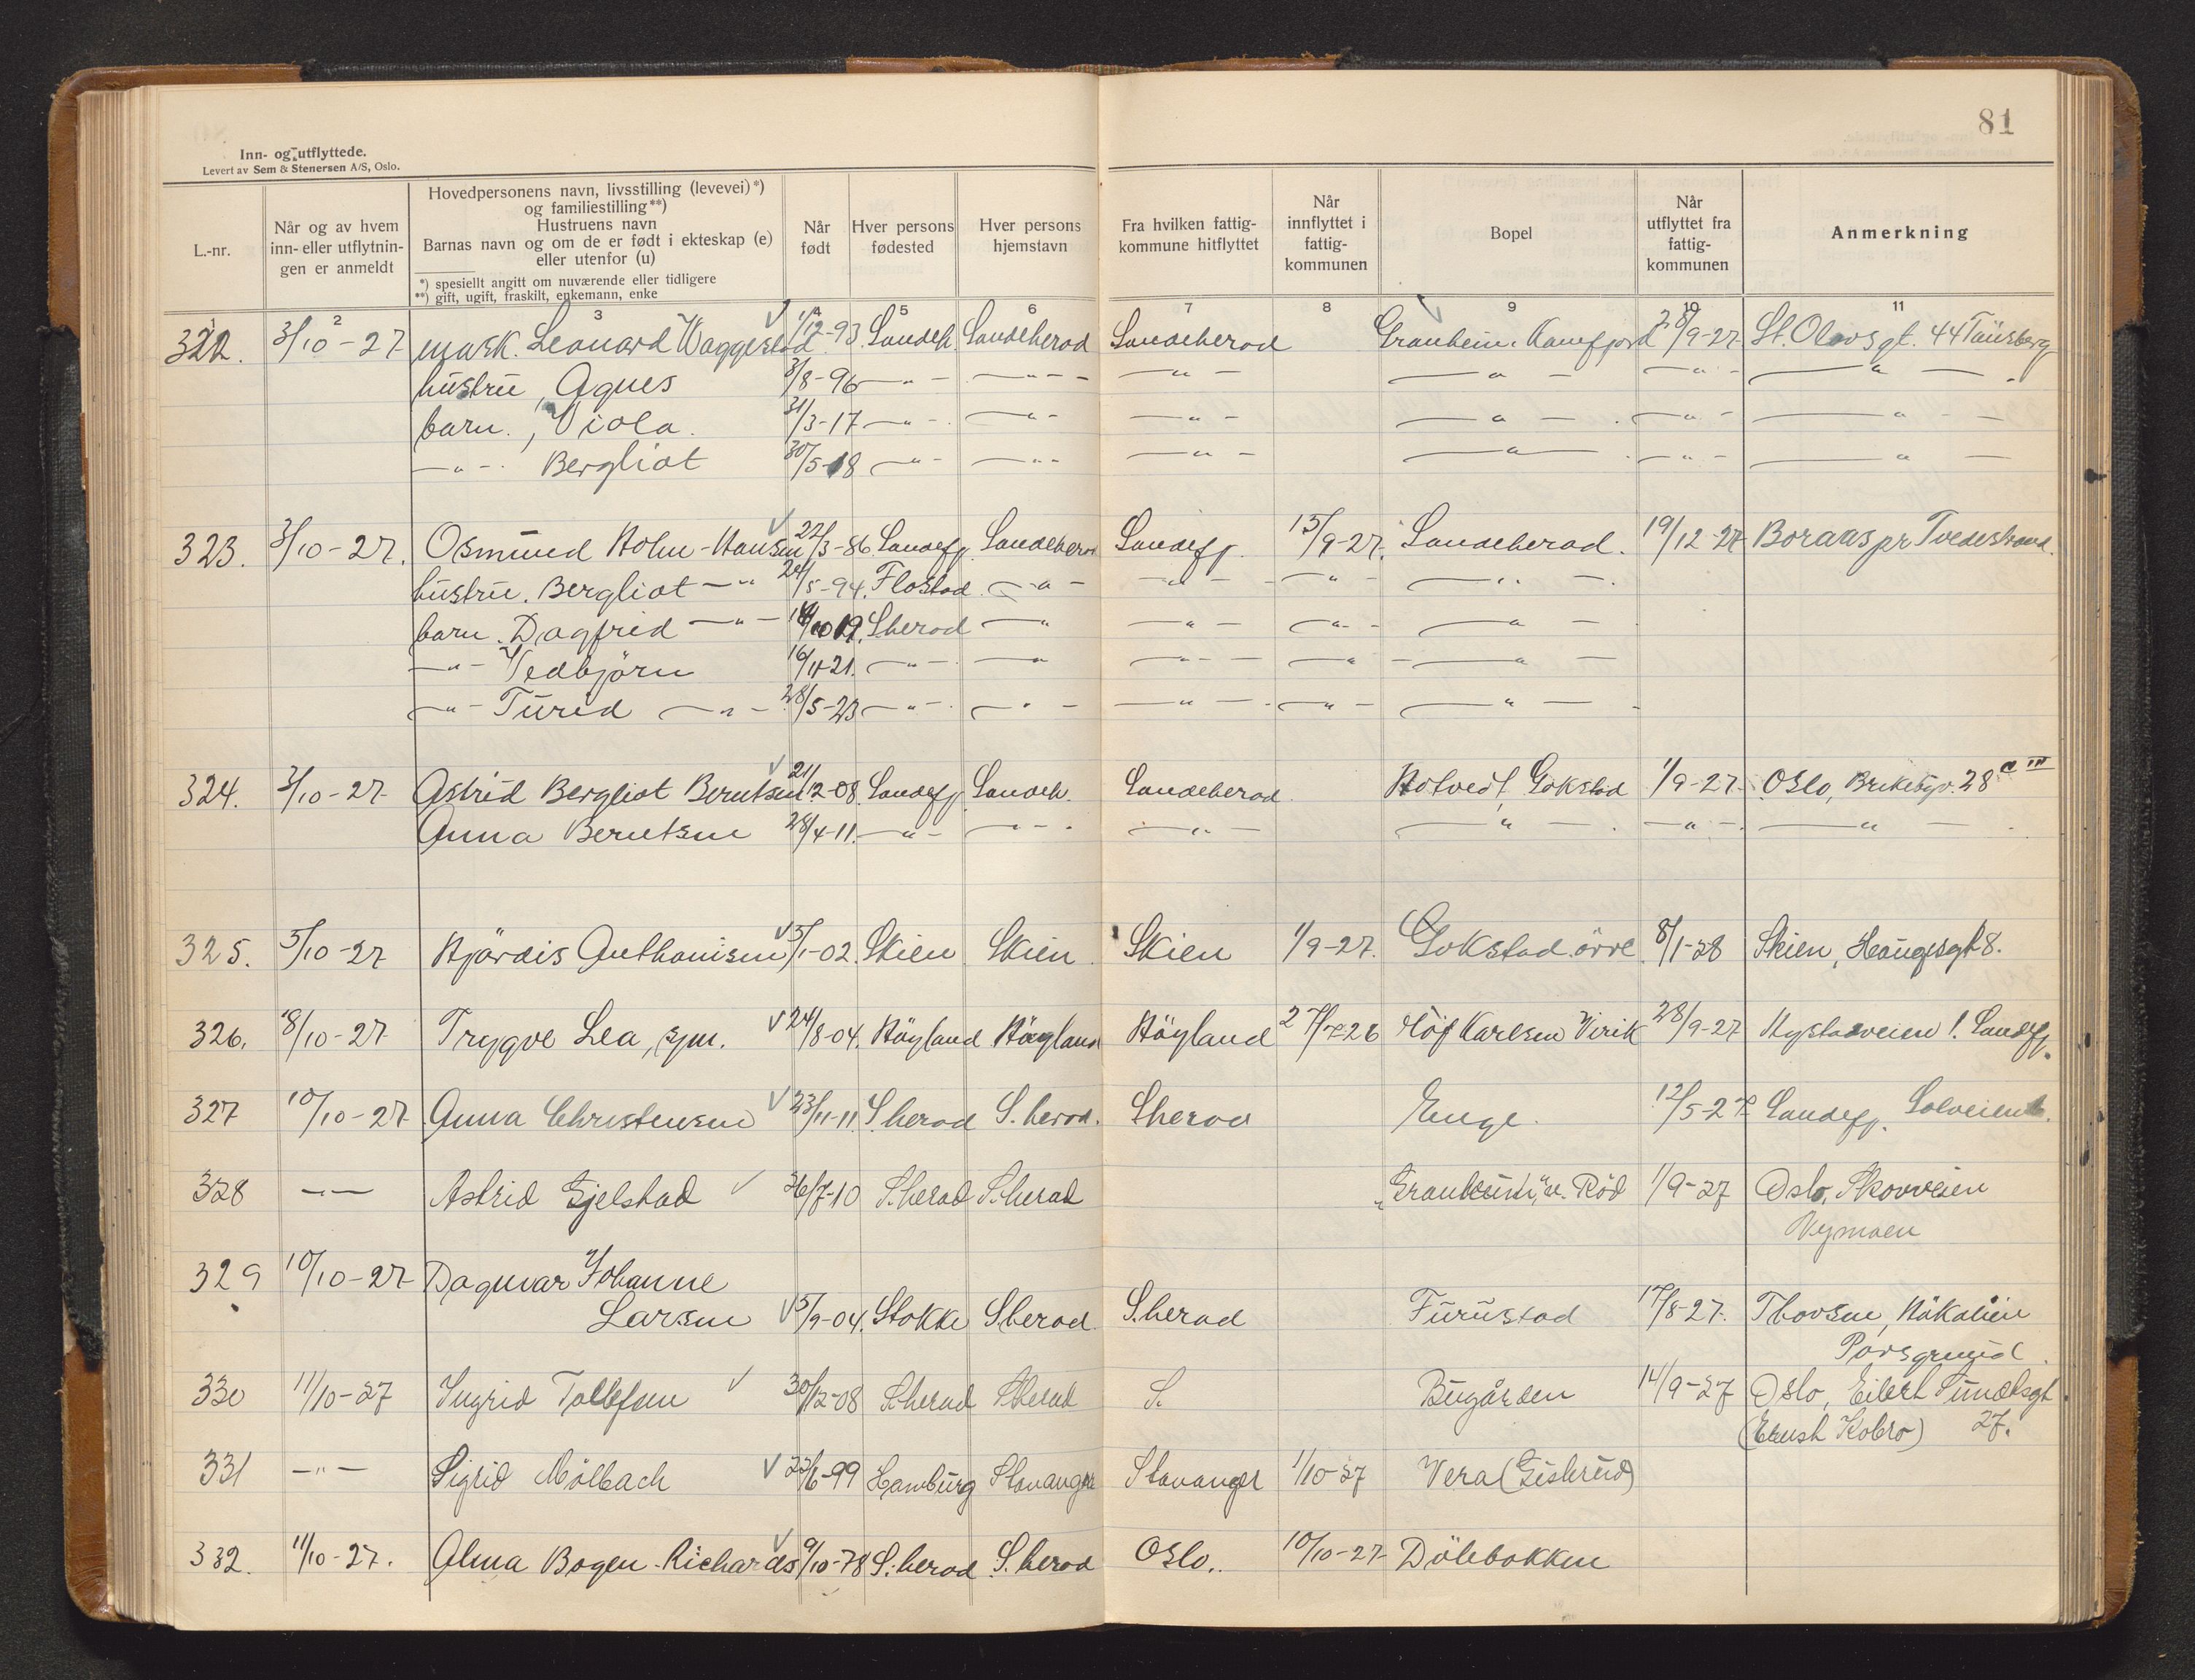 81
Inn- og utflyttede.
Levert av Sem & Stenersen A/S, Oslo.
L.-nr.
Når og av hvem inn- eller utflytningen er anmeldt
Hovedpersonens navn, livsstilling (levevei)*)
og familiestilling**)
Hustruens navn
Barnas navn og om de er født i ekteskap (e)
eller utenfor (u)
*) spesiellt angitt om nuværende eller tidligere
**) gift, ugift, fraskilt, enkemann, enke
Når født
Hver persons fødested
Hver persons hjemstavn
Fra hvilken fattigkommune hitflyttet
Når innflyttet i fattigkommunen
Bopel
Når utflyttet fra fattigkommunen
Anmerkning
1 2 3 5 6 7 8 9 10 11
322. 3/10-27 mask. Leonard Waggestad 1/12-93 Sandeh. Sandeherad Sandeherad Granheim. Kamfjord 28/9-27 St. Olavsgt. 44 Tünsberg
hustru, Agnes 3/8-96 -"- -"- -"- -"- -"- -"-
barn., Viola. 31/3-17 -"- -"- -"- -"- -"- -"-
-"- Bergliot 30/5-18 -"- -"- -"- -"- -"- -"-
323. 3/10-27. Osmund Holm-Hansen 22/3-86 Sandefj. Sandeherad Sandefj. 15/9-27. Sandeherad. 19/12-27 Boraas pr Tvedestrand.
hustru. Bergliot -"- 24/5-94. Flostad -"- -"- -"- -"-
barn. Dagfrid -"- 14/10 19. Sherad -"- -"- -"- -"-
-"- Vedbjörn 16/11-21. -"- -"- -"- -"- -"-
-"- Turid -"- 28/5-23 -"- -"- -"- -"- -"-
324. 3/10-27 Astrid Bergliot Berntsen 21/12-08 Sandefj. Sandeh. Sandeherad Hotvedt, Gokstad 1/9-27. Oslo, 28
Anna Berntsen 28/4-11. -"- -"- -"- -"- -"- -"-
325. 5/10-27 Hjördis Anthonisen 5/1-02. Skien Skien Skien 1/9-27. Gokstad övre 8/1-28 Skien, Haugesgt 8.
326. 8/10-27 Trygve Lea, sjm. 24/8-04. Höyland Höyland Höyland 27/7-26 Höj Karlsen Virik 28/9-27 Nystadveien 1. Sandefj.
327 10/10-27 Anna Christensen 23/11-11 S.herad S.herad. Sherad Enge. 12/5-27 Sandefj. Solveien
328 -"- Astrid Gjelstad 26/7-10 S.herad S.herad "Granheim", n. Röd 1/9-27 Oslo, Skovveien
329 10/10-27 Dagmar Johanne
Larsen 5/9-04. Stokke Sherad. S.herad Furustad 17/8-27. Thorsen,
Porsgrund.
330 11/10-27 Ingrid Tollefsen 30/12-08 S.herad S.herad S. Bugården 14/9-27 Oslo, Eilert Sundtsgt
27.
331 -"- Sigrid Mölbach 23/6-99 Hamburg Stavanger Stavanger 1/10-27 Vera (Gisterud)
332. 11/10-27. Alma Bogen-Richards 9/10-78 S.herad S.herad Oslo. 10/10-27 Dölebakken